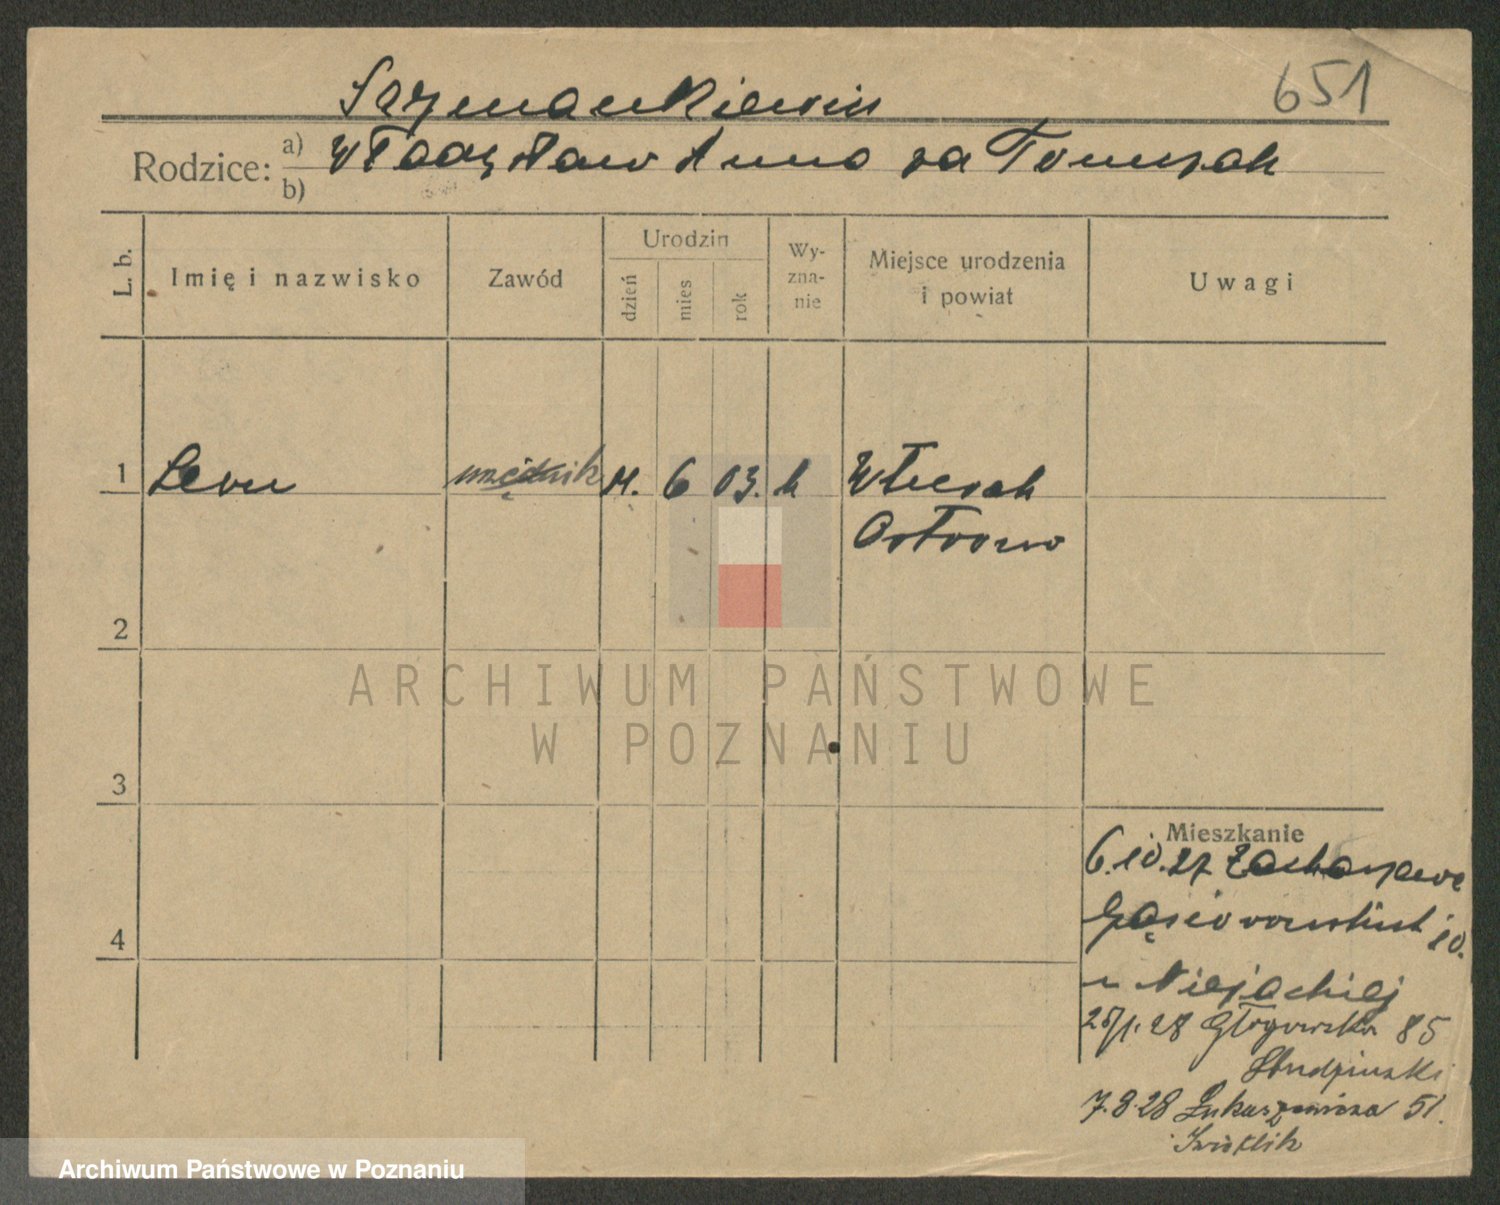 651
Szymankiewicz
Rodzice: a) Władysław Anna za Tomczak
b)
L. b. Imię i nazwisko Zawód Urodzin dzień mies rok Wy-zna-nie Miejsce urodzenia i powiat Uwagi
1 Leon urzędnik 11. 6 03. k Wturek
Ostrowo
2
3
4
Mieszkanie
6.10.27
Gąsiorowskich 10.
u Niejackiej
25/1.28 Głogowska 85
Studziński
7.8.28 Łukaszewicza 51.
Ćwiklik
ARCHIWUM PAŃSTWOWE
W POZNANIU
Archiwum Państwowe w Poznaniu